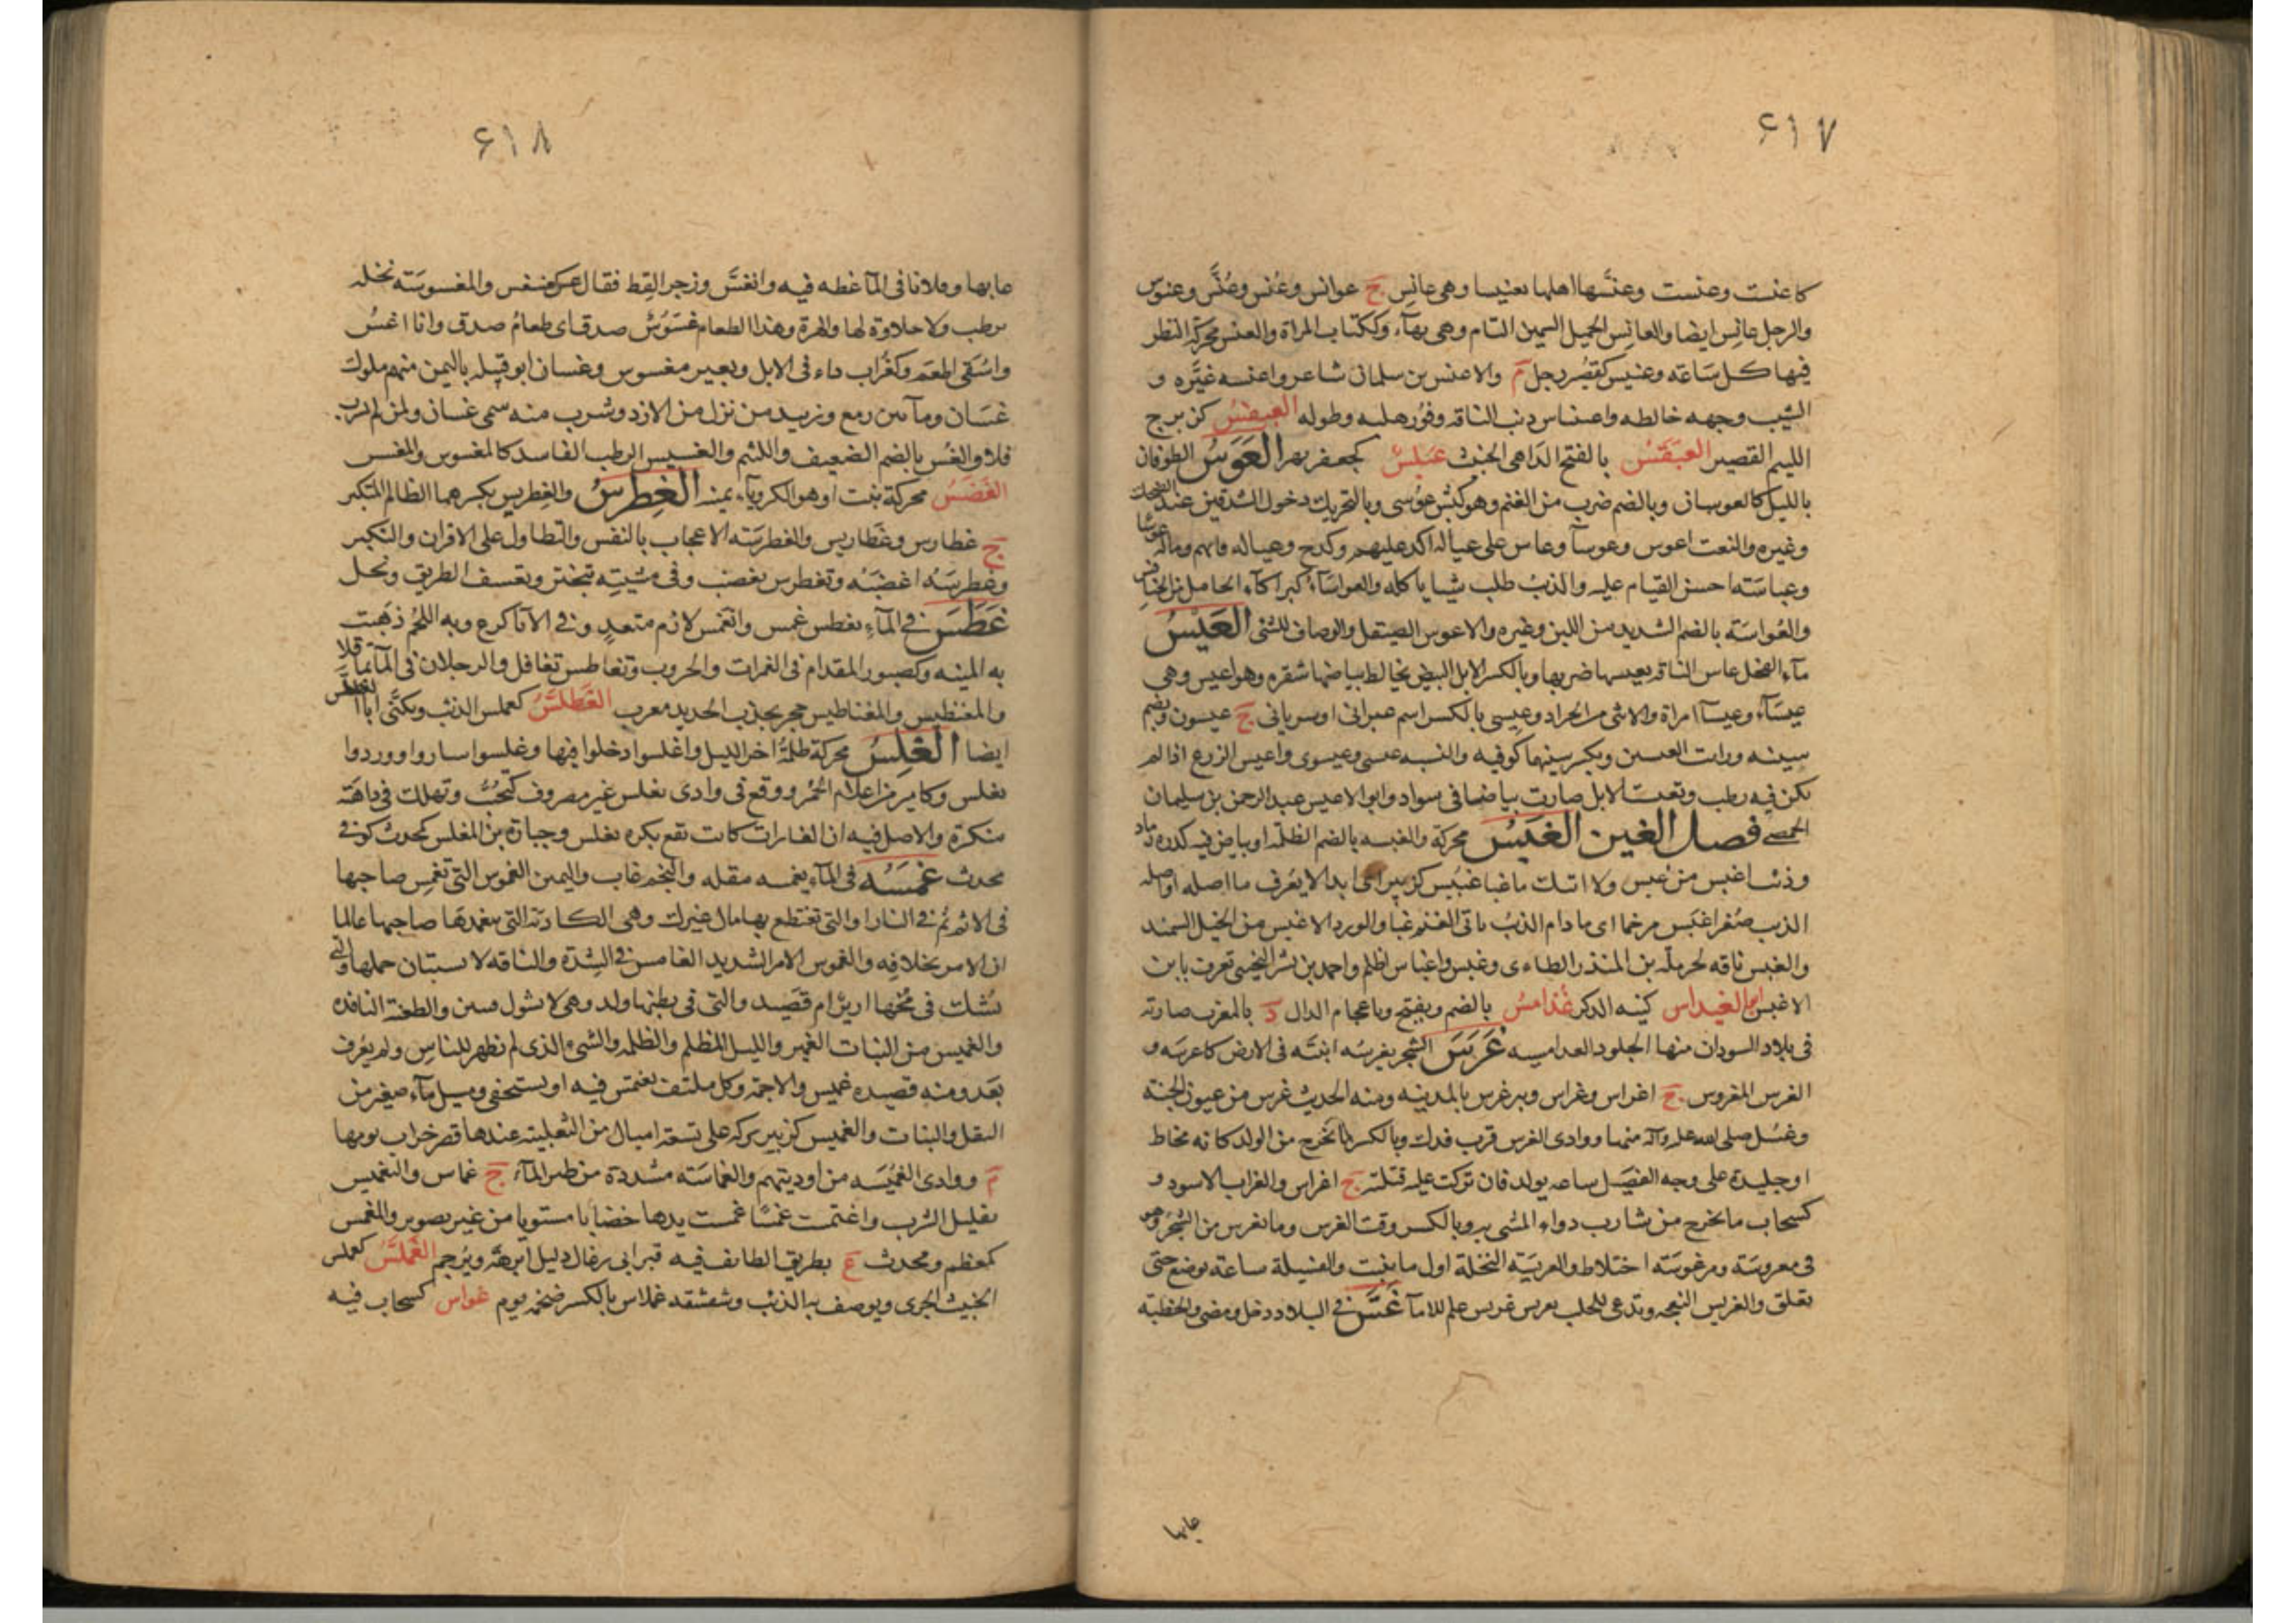 ٤١٧
كاعنت وعنست وعنسها اهلها تعنيسا وهى عانس ج عوانس وعُنس وعُنَّس وعنوس
والرجل عانس ايضا والعانس الجمل السمين التام وهى بهآء وككتاب المراة والعنس محركة النظر
فيها كل ساعة وعنيس كقصُير رجل م والاعنس بن سلمان شاعر واعنسه غيَّره و
الشيب وجهه خالطه واعناس ذنب الناقه وفور هلبه وطوله العبنقس كزبرج
اللئيم القصير العبنقس بالفتح الداهى الخبيث كجعفر العَوسُ الطوفان
بالليل كالعوسان وبالضم ضرب من الغنم وهو كبش عوسى وبالتحريك دخول الشدقين عند الضحك
وغيره والنعت اعوس وعوسآ وعاس على عياله اكد عليهم وكدح وعياله قاتهم وماله عوسا
وعياسته احسن القيام عليه والذئب طلب شيا ياكله والعواسآء كبراكآء الحامل من الخنافس
والعُواسَة بالضم الشديد من اللبن وغيره والاعوس الصيقل والوصاف للشئ العَيسُ
مآء الفحل عاس الناقة يعيسها ضربها وبالكسر الابل البيض يخالط بياضها شقره وهو اعيس وهى
عيسآء وعيسآ امراة والانثى من الجراد وعيسى بالكسر اسم عبرانى اوسريانى ج عيسون ويضم
سينه ورات العيسين وبكسر سينهما كوفيه والنسبه عيسى وعيسوى واعيس الزرع اذا لم
يكن فيه رطب وتعيست الابل صارت بياضها فى سواد وابو الاعيس عبد الرحمن بن سليمان
الحمصى فصل الغين الغَبَسُ محركة والغبسه بالضم الظلمة او بياض فيه كدره رماد
وذئب اغبس من غبس ولا اتيك ما غبا غُبيس كزبير اى ابدا لا يعرف ما اصله او اصله
الذئب صُغر اغبَس مرخما اى ما دام الذئب ياتى الغنم غبا والورد الاغبس من الخيل السمند
والغبس ناقه لحرملة بن المنذر الطاءى وغبس واغباس اظلم واحمد بن بشر التجيبى يعرف بابن
الاغبس ابو الغيداس كنيه الذكر غُدامسُ بالضم ويفتح وباعجام الدال د بالمغرب ضاربة
فى بلاد السودان منها الجلود الغدامسيه غَرَسَ الشجر يغرسه اثبته فى الارض كاغرسه و
الغرس المغروس ج اغراس وغراس وبير غرس بالمدينه ومنه الحديث غرس من عيون الجنة
وغسل صلى الله عليه وآله منها ووادى الغرس قرب فدك وبالكسر ما يخرج من الولد كانه مخاط
او جليدة على وجه الفصيل ساعه يولد فان تركت عليه قتلته ج اغراس والغراب الاسود و
كسحاب ما يخرج من شارب دواء المشى وبالكسر وقت الغرس وما يغرس من الشجر وهو
فى مغروسة ومرغوسة اختلاط والغريسة النخلة اول ما ينبت والفسيلة ساعة يوضع حتى
تعلق والغريس النعجه وتدعى للحلب بغريس غريس علم للامآ غَسَّ فى البلاد دخل ومضى والخطبة
عابها
٤١٨
عابها وفلانا فى المآ غطه فيه وانغسَّ وزجر القط فقال غس والمغسوسَة نخله
ترطب ولا حلاوة لها والهرة وهذا الطعام غسوس صدق اى طعام صدق وانا اغسُ
واسقى اطعم وكغراب داء فى الابل وبعير مغسوس وغسان ابو قبيلة باليمن منهم ملوك
غسان ومآ بين رمع وزبيد من نزل من الازد وشرب منه سمى غسان ولمن لم يشرب
فلا والغُس بالضم الضعيف واللئيم والغسيس الرطب الفاسد كالمغسوس والمغسس
الغَضَسُ محركة نبت اوهو الكروياء يمنيه الغِطرِسُ والغِطريس بكسرهما الظالم المتكبر
ج غطارس وغطاريس والغطرسة الاعجاب بالنفس والتطاول على الاقران والتكبر
وغطرسه اغضبه وتغطرس تغضب وفى مشيته تبختر وتعسف الطريق وبخل
غَطَسَ فى المآء يغطس غمس وانغمس لازم متعد وفى الانآ كرع وبه اللجم ذهبت
به المنيه وكصبور المقدام فى الغمرات والحروب وتغاطس تغافل والرجلان فى المآ تماقلا
والمغنطيس والمغناطيس حجر يجذب الحديد معرب الغَطلَّسُ كعملس الذئب ويكنى ابا الغطلس
ايضا الغَلَسُ محركة ظلمة اخر الليل واغلسوا دخلوا فيها وغلسوا ساروا ووردوا
بغلس وكامير من اعلام الحُمر ووقع فى وادى تغلس غير مصروف كتخيب وتهلك فى داهية
منكرة والاصل فيه ان الغارات كانت تقع بكره بغلس وجبارة بن المغلس كمحدث كوفى
محدث غَمَسَه فى المآء يغمسه مقله والنجم غاب واليمين الغموس التى تغمس صاحبها
فى الاثم ثم فى النار او التى تقتطع بها مال غيرك وهى الكاذبه التى يتعمدها صاحبها عالما
ان الامر بخلافه والغموس الامر الشديد الغامس فى الشدة والناقه لا يستبان حملها والتى
يُشك فى مُخها ارير ام قصيد والتى فى بطنها ولد وهى لا تشول فتبين والطعنة النافذه
والغميس من النبات الغمير والليل المظلم والظلمه والشئ الذى لم يظهر للناس ولم يعرف
بعد ومنه قصيده غميس والاجمة وكل ملتف يغتمس فيه او يستخفى ومسيل مآء صغير من
البقل والنبات والغميس كزبير بركه على تسعة اميال من الثعلبية عندها قصر خراب يومها
م ووادى الغُمَيسه من اوديتهم والغماسة مشددة من طير المآء ج غماس والتغميس
تقليل الشرب واغتمست غمسا غمست يدها خضابا مستويا من غير تصوير والمغمس
كمعظم ومحدث ع بطريق الطائف فيه قبر ابى رغال دليل ابرهة ويرجم الغَمَلَّسُ كعملس
الخبيث الجرى ويوصف به الذئب وشقشقه غملاس بالكسر ضخمه يوم غواس كسحاب فيه